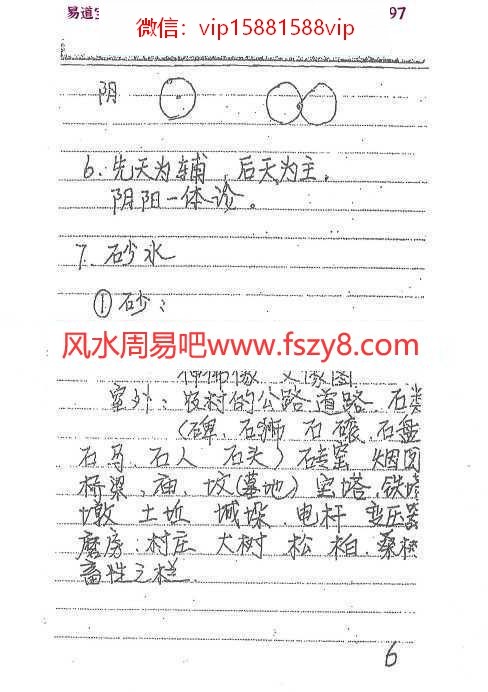 易道
97
微信：vip15881588vip
阴
6. 先天为辅，后天为主。
阴阳一体论。
7. 砂水
①砂：
风水周易吧www.fszy8.com
神佛像
室外：农村的公路、道路、石类
（碑、石狮 石磙、石盘
石马、石人 石头）砖窑 烟囱
桥梁、庙、坟（墓地）宝塔、铁塔
墩 土丘 城垛、电杆 变压器
磨房、村庄 大树 松 柏、桑
畜牲之栏
6